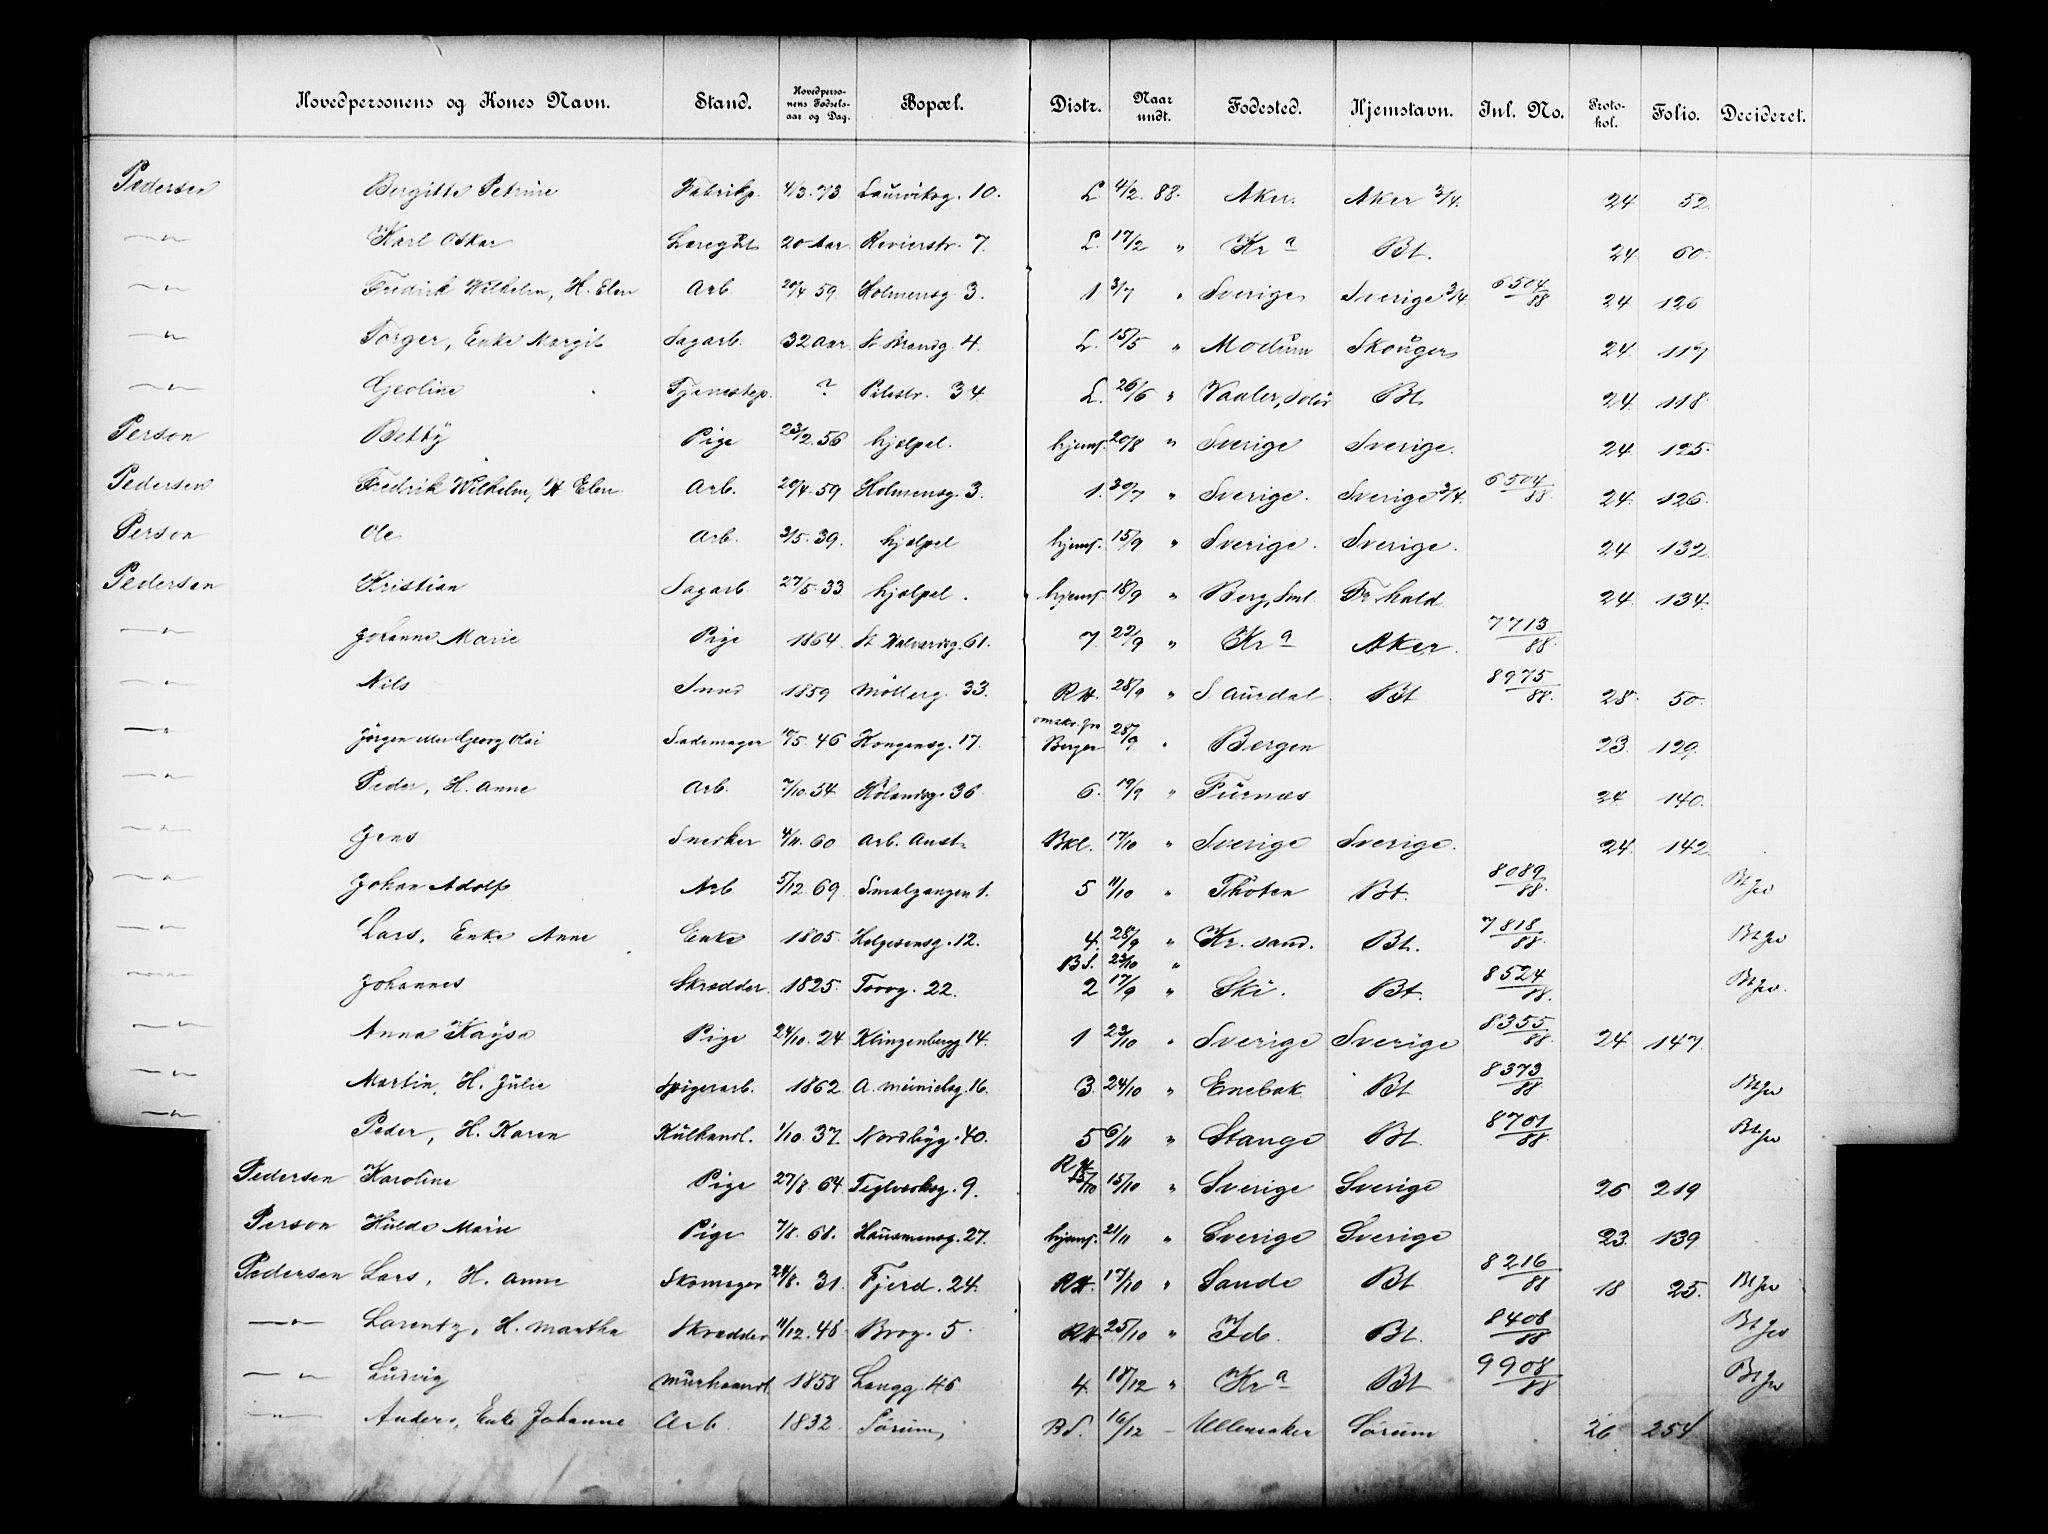 Hovedpersonens og Kones Navn. Stand. Hovedperso-nens Fødsels-aar og Dag. Bopæl. Distr. Naar undt. Fødested. Hjemstavn. Jnl. No. Proto-kol. Folio. Decideret.
Pedersen Bergitte Petrine Fabrikp. 4/3.73 Laurviksg. 10. L 4/2 88. Aker. Aker 3/4. 24 52.
—"— Karl Oskar 20 Aar Revierstr. 7. L. 17/2 " Kr a Bt. 24 60.
—"— Fredrik Wilhelm, H. Elen Arb. 20/4 59. Holmensg. 3. 1 3/7 " Sverige Sverige 3/4 6504/88 24 126
—"— Torger, Enke Margit Sagarb. 32 Aar. St Strandg. 4. L. 15/5 " Modum Skouger 24. 117
—"— Georline Tjenestep. ? Pilestr. 34 L. 26/6 " Vaaler, Solør Bt. 24. 118.
Person Betty Pige 23/2. 56 hjælpel. hjems. 20/8 " Sverige Sverige. 24 125.
Pedersen Fredrik Wilhelm, H Elen Arb. 20/4. 59 Holmensg. 3. 1. 30/7 " Sverige. Sverige 3/4. 6504/88. 24. 126.
Person Ole Arb. 3/5. 39. hjælpel hjems. 15/9 " Sverige. Sverige. 24 132.
Pedersen Kristian Sagarb 27/5. 33 hjælpel. hjems. 18/9 " Berg, Sml. Fr. hald 24. 134.
—"— Johanne Marie Pige 1864. St Halvardsg. 61. 7. 22/9 " Kr a Aker. 7713/88.
—"— Nils Sned 1859 Møllerg. 33. RH. 28/9 " S. Aurdal. Bt 8975/88. 28. 50.
—"— Jørgen eller Georg Olai Sadelmager 17/5. 46 Kongensg. 17. omskr. fra Bergen 28/9 " Bergen 23. 129.
—"— Peder, H. Anne Arb. 7/10. 54 Hølandsg. 36. 6. 19/9 " Furnæs 24. 140.
—"— Jens Snedker 4/11. 60 Arb. Anst. Bkl. 17/10 " Sverige Sverige. 24. 142.
—"— Johan Adolf Arb 5/12 69. Smalgangen 1. 5 11/10 " Thoten Bt. 8089/88. Bt
—"— Lars, Enke Anne Enke 1805. Holgesensg. 12. 4. 28/9 " Kr. sand. Bt. 7818/88. Bt
BS. 23/10 "
—"— Johannes Skrædder. 1825. Torvg. 22. 2 17/9 " Ski. Bt. 8524/88. Bt
—"— Anna Kaysa Pige 24/10. 24 Klingenbergg 14. 1 23/10 " Sverige Sverige 8355/88. 24 147.
—"— Martin, H. Julie Spigerarb. 1862. A. 16. 3. 24/10 " Enebak Bt 8373/88 Bt
—"— Peder, H. Karen Kulhandl. 1/10. 37. Nordbyg. 40. 5 6/11 " Stange Bt. 8701/88. Bt
Pedersen Karoline Pige 27/8. 64. Teglverksg. 9. RH 15/10 15/10 " Sverige Sverige 26 219
Person Hulda Marie Pige 7/8. 68. Hausmansg. 27. hjems. 21/11 " Sverige Sverige 23. 139
Pedersen Lars, H. Anne Skomager 24/8. 31. Fjerd. 24. RH. 17/10 " Sande Bt 8216/88 18 25. Bt
—"— Lorentz, H. Martha Skrædder 11/12. 48 Brog. 5. RH. 25/10 " Id. Bt. 8408/88 Bt
—"— Ludvig Murhaandl. 1858 Langg. 46 4. 18/12 " Kr a Bt 9908/88 Bt
—"— Anders, Enke Johanne Arb. 1832. Sørum, BS. 16/12 — Ullensaker Sørum 26 254.